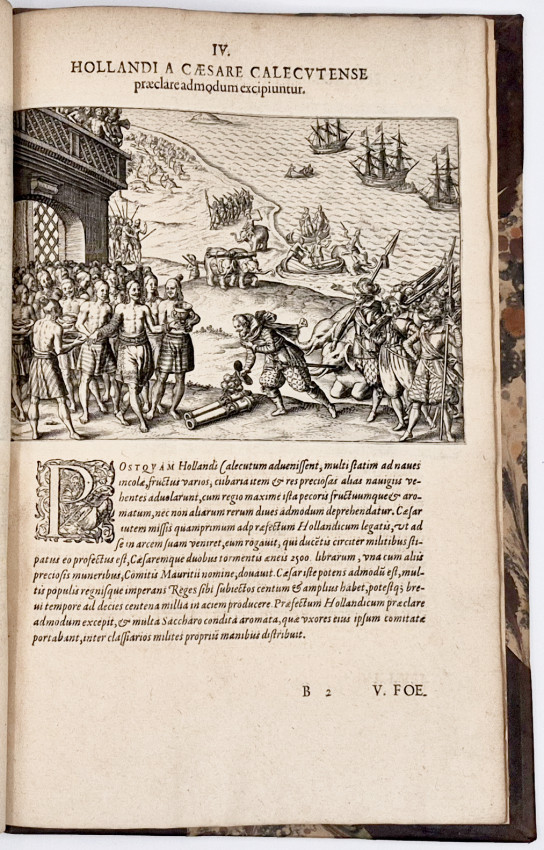 IV.
HOLLANDI A CÆSARE CALECVTENSE
præclare admodum excipiuntur.
POSTQVAM Hollandi Calecutum aduenissent, multi statim ad naues
incolæ, fructus varios, cibaria item & res preciosas alias nauigiis ve-
hentes aduolarunt, cum regio maxime ista pecoris fructuumque & aro-
matum, nec non aliarum rerum diues admodum deprehendatur. Cæsar
autem missis quamprimum ad præfectum Hollandicum legatis, vt ad
se in arcem suam veniret, eum rogauit, qui ducētis circiter militibus sti-
patus eo profectus est, Cæsaremque duobus tormentis æneis 2500. librarum, vna cum aliis
preciosis muneribus, Comitis Mauritii nomine, donauit. Cæsar iste potens admodū est, mul-
tis populis regnisque imperans Reges sibi subiectos centum & amplius habet, potestq; bre-
ui tempore ad decies centena millia in aciem producere. Præfectum Hollandicum præclare
admodum excepit, & multa Saccharo condita aromata, quæ vxores eius ipsum comitatæ
portabant, inter classiarios milites propriis manibus distribuit.
B 2 V. FOE-